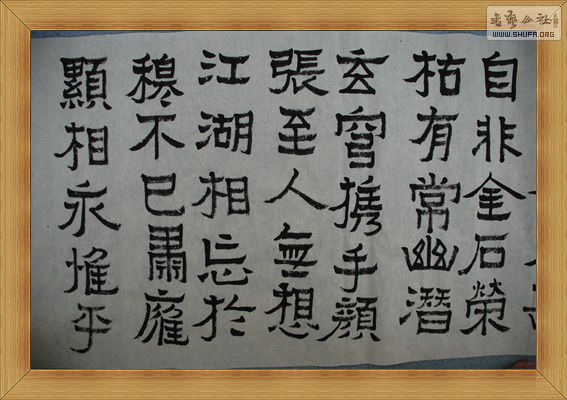 自非金石榮
枯有常幽潛
玄穹携手顏
張至人無想
江湖相忘於
穆不已肅廱
顯相永惟平
書藝公社
WWW.SHUFA.ORG